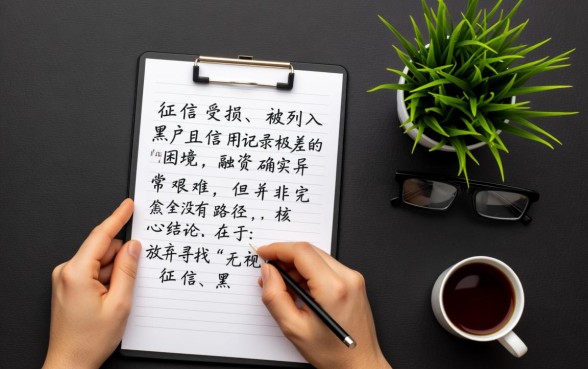 征信受损、被列入
黑户且信用记录极差的
困境，融资确实异
常艰难，但并非完
全没有路径,，核
心结论，在于：
放弃寻找“无视
征信、黑